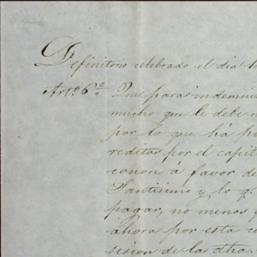 Definitorio celebrado el dia
Art.o 6.o Que para indemni
mucho que le debe
por lo que ha p
reditos por el capi
conoce á favor de
Santisimo y lo q.
pagar, no menos
ahora por esta c
sesion de la dha.